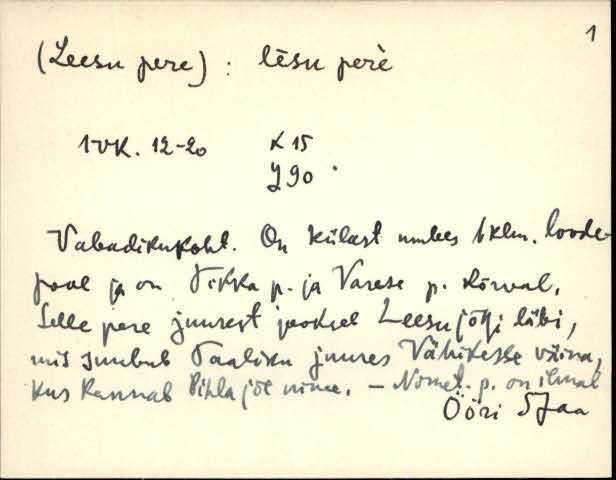 1
(Leesu pere) : lēsu perè
1VK. 12-20 X 15
Y 90
Vabadikukoht. On külast umbes 1 klm. loode-
pool ja on Tikka p. ja Varese p. kõrval.
Selle pere juurest jookseb Leesu jõgi läbi,
mis suubub Taaliku juures Väikesse väina,
kus kannab Pihla jõe nime. – Nomet. p. on ilmal
Ööri SJaa